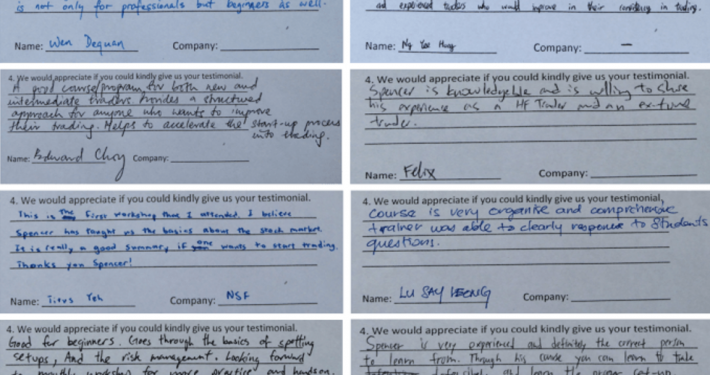 is not only for professionals but beginners as well.
Name: Wen Dequan Company:
and experienced traders who would improve in their consistency in trading.
Name: Ng Yee Hung Company: —
4. We would appreciate if you could kindly give us your testimonial.
A good course/program for both new and
intermediate traders. Provides a structured
approach for anyone who wants to improve
their trading. Helps to accelerate the start-up process
into trading.
Name: Edward Choy Company:
4. We would appreciate if you could kindly give us your testimonial.
Spencer is knowledgeable and is willing to share
his experience as a HF Trader and an ex-fund
trader.
Name: Felix Company:
4. We would appreciate if you could kindly give us your testimonial.
This is the first workshop that I attended. I believe
Spencer has taught us the basics about the stock market.
It is really a good summary if one wants to start trading.
Thanks you Spencer!
Name: Titus Yeh Company: NSF
4. We would appreciate if you could kindly give us your testimonial.
course is very organise and comprehensive
trainer was able to clearly response to students
questions.
Name: LU SAY LEONG Company:
4. We would appreciate if you could kindly give us your testimonial.
Good for beginners. Goes through the basics of spotting
setups, And the risk management. Looking forward
to monthly workshop for more practice and hands on.
4. We would appreciate if you could kindly give us your testimonial.
Spencer is very experienced and definitely the correct person
to learn from. Through his course you can learn to take
and learn the proper